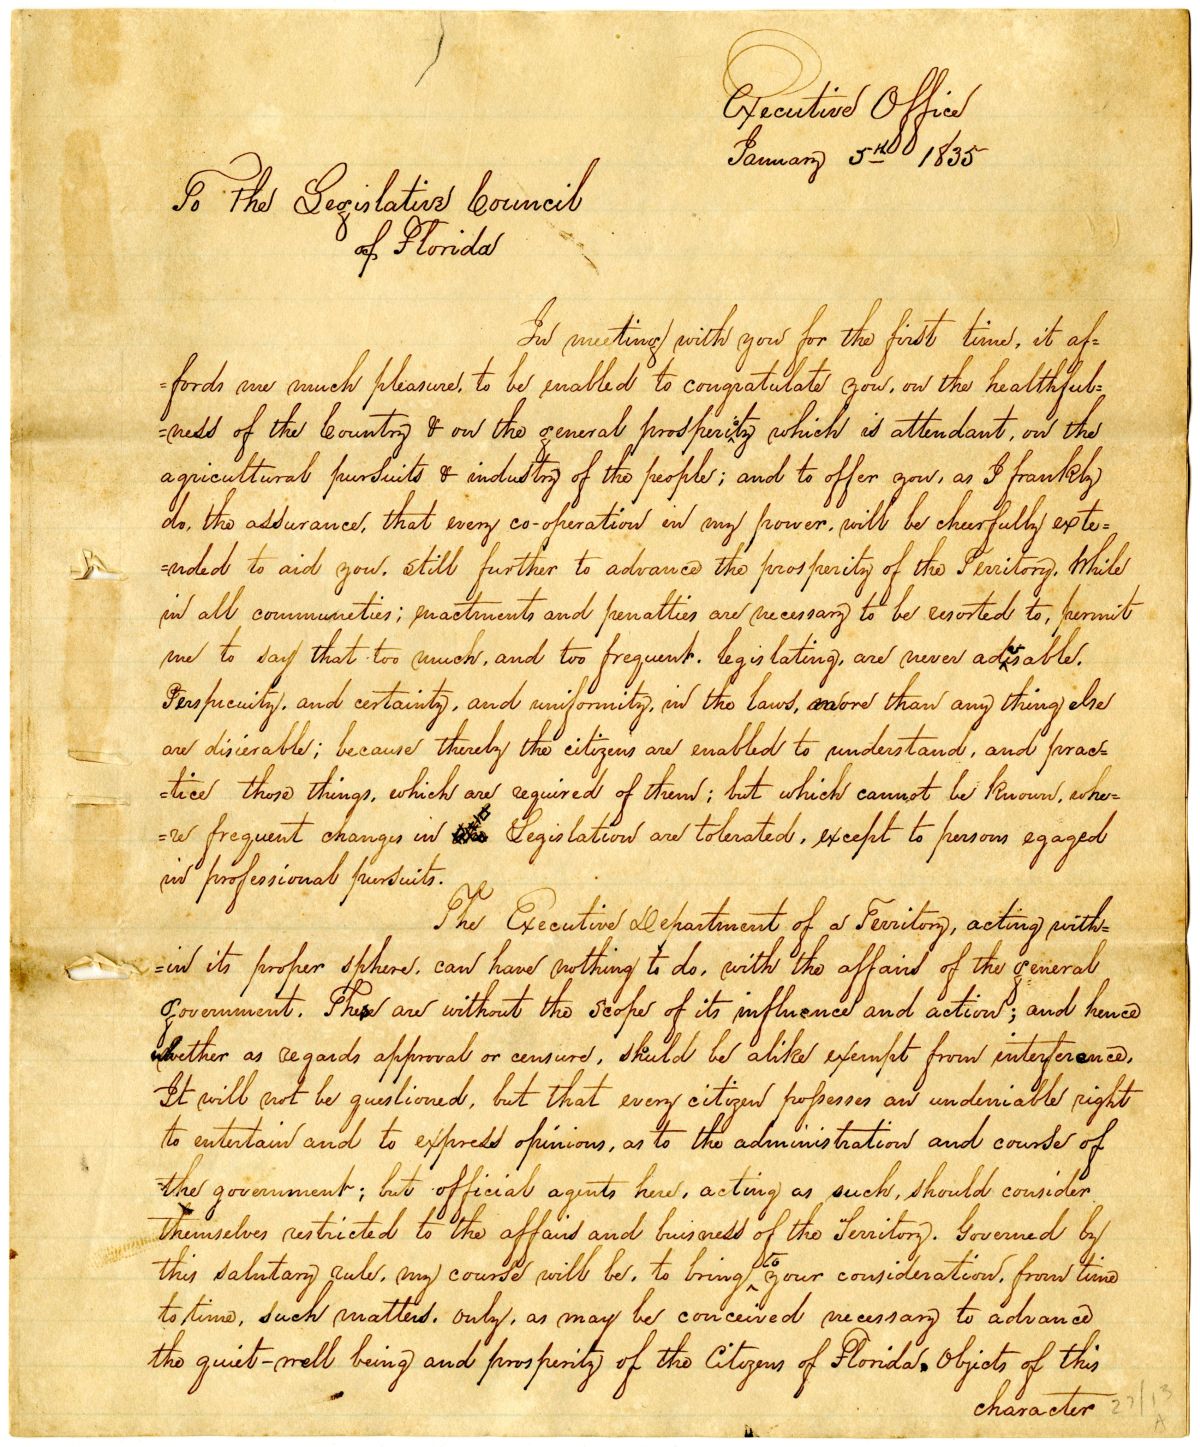 Executive Office
January 5th 1835
To The Legislative Council
of Florida
In meeting with you for the first time, it af=
=fords me much pleasure, to be enabled to congratulate you, on the healthful=
=ness of the Country & on the general prosperity which is attendant, on the
agricultural pursuits & industry of the people; and to offer you, as I frankly
do, the assurance, that every co-operation in my power, will be cheerfully exte=
=nded to aid you, still further to advance the prosperity of the Territory. While
in all communeties; enactments and penalties are necessary to be resorted to, permit
me to say that too much, and too frequent. legislating, are never advisable.
Perspicuity, and certainty, and uniformity, in the laws, more than any thing else
are disierable; because thereby the citizens are enabled to understand, and prac=
=tice those things, which are required of them; but which cannot be known, whe=
=re frequent changes in Legislation are tolerated, except to persons egaged
in professional pursuits.
The Executive Department of a Territory, acting with=
=in its proper sphere, can have nothing to do, with the affairs of the general
government. These are without the scope of its influence and action; and hence
whether as regards approval or censure, should be alike exempt from interference.
It will not be questioned, but that every citizen possesses an undeniable right
to entertain and to express opinions, as to the administration and course of
the government; but official agents here, acting as such, should consider
themselves restricted to the affairs and buisness of the Territory. Governed by
this salutary rule, my course will be, to bring to your consideration, from time
to time, such matters, only, as may be conceived necessary to advance
the quiet-well being and prosperity of the Citizens of Florida. Objects of this
character
27/13
A